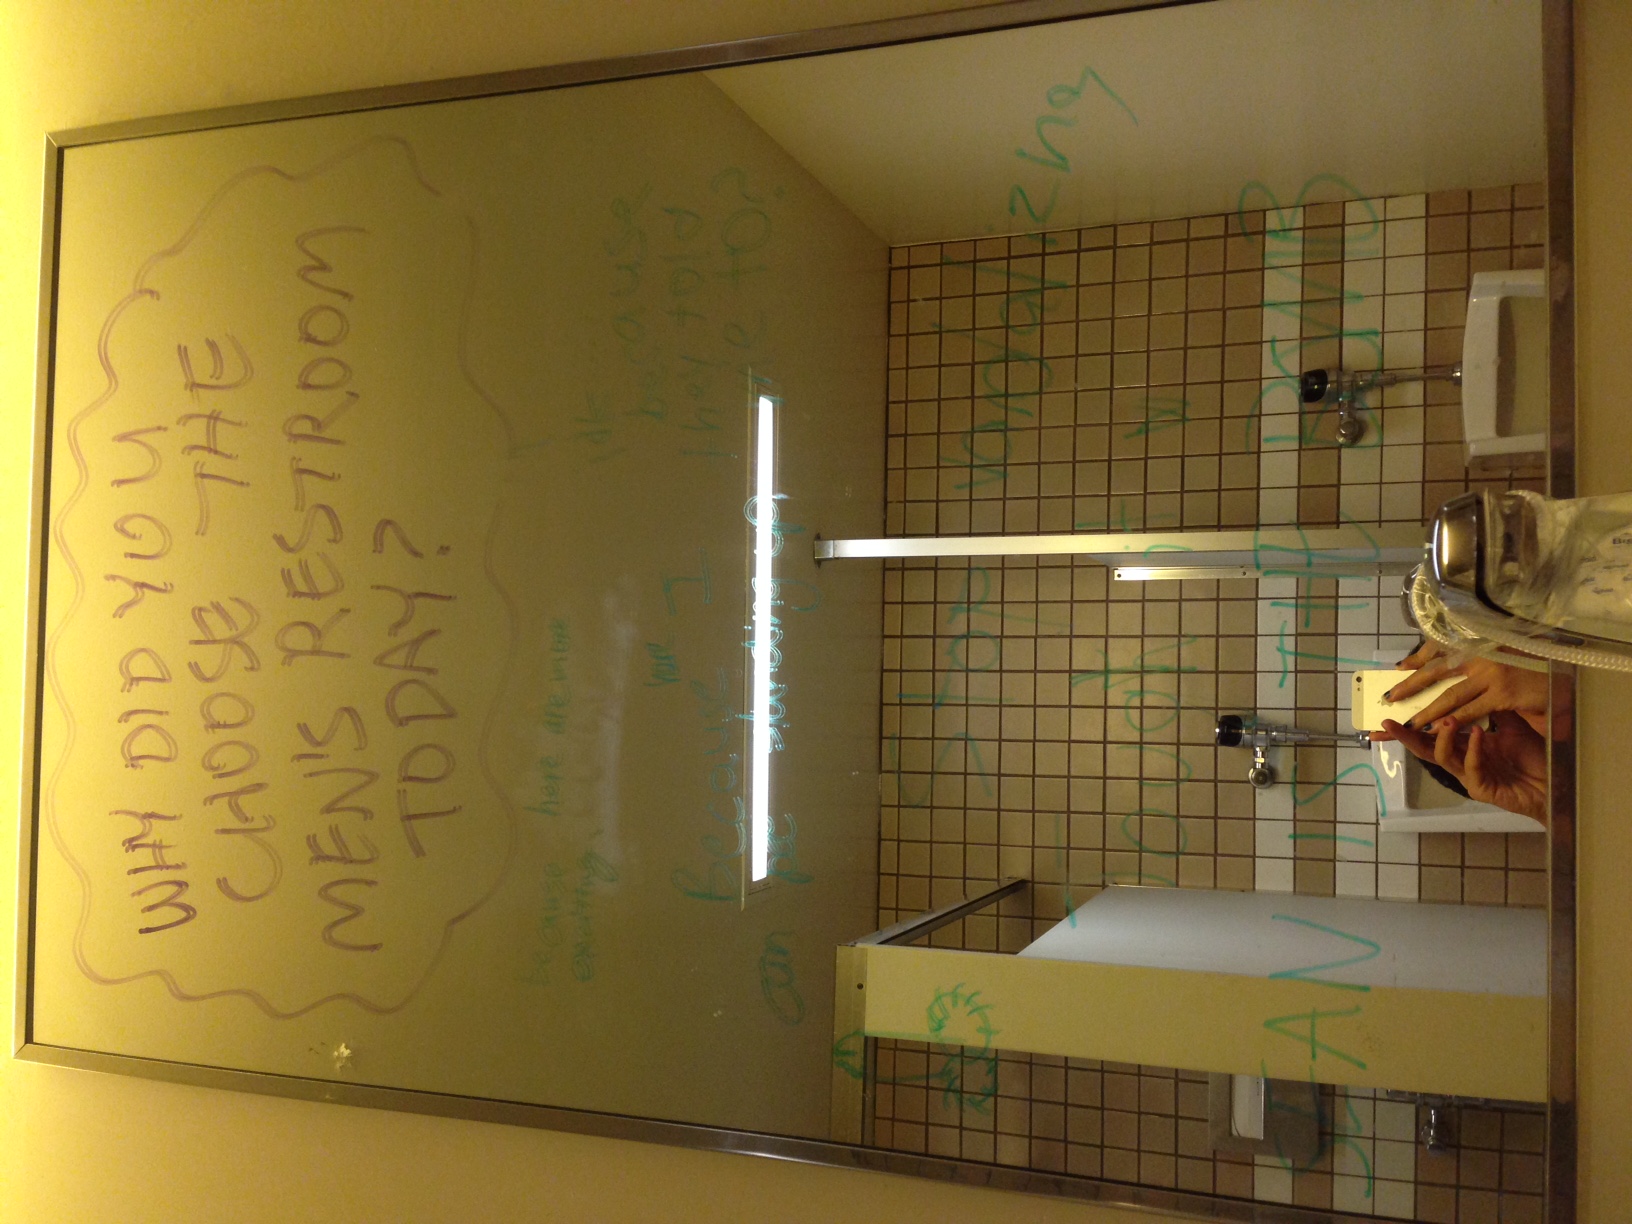 WHY DID YOU
CHOOSE THE
MEN'S RESTROOM
TODAY?
because here are more
idk
because
they told
me to?
Because I
can pee standing up
Stop vandalizing
Tough it
SEAN IS THE BOMB